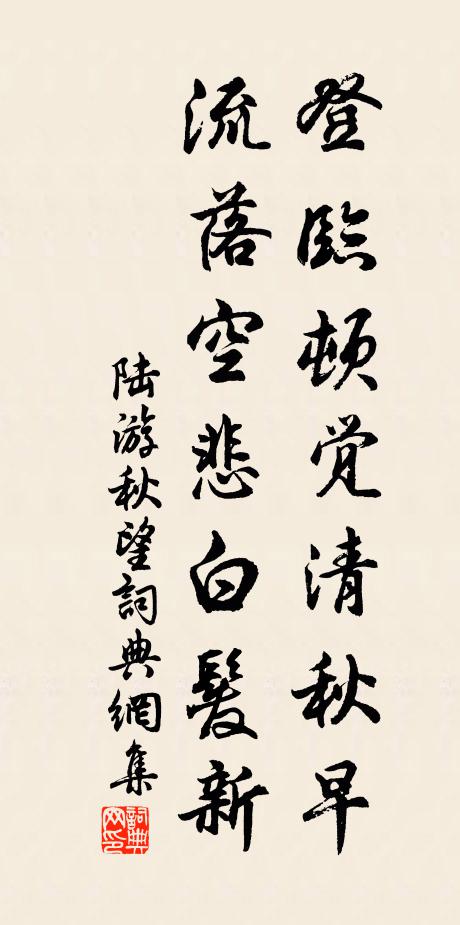 登臨頓觉清秋早
流落空悲白髮新
陆游秋望詞典網集
詞典网印